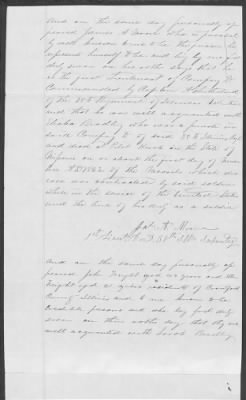 And on the same day personally ap
peared James A Moore who is personal
ly well known to me to be the person he
represents himself to be and by me
duly sworn on his oath says that he
is the first Lieutenant of Company D
Commanded by Captain
of the 38th Regiment of Illinois Volunteers
and that he was well acquainted with
Bradley who was a private in
said Company D of said 38th Illinois Regt
and died at Pilot Knob in the State of
Missouri on or about the first day of
AD 1862 of the Measels which dis
ease was contracted by said soldier
while in the service of the United States
and the line of his duty as a soldier
Jas A Moore
1st Lieut Co D 38th Ills Infantry
And on the same day personally ap
peared John Wright aged years and
Wright aged years residents of Crawford
County Illinois and to me known to be
credible persons and who being first duly
sworn on their oaths say that they are
well acquainted with Sarah Bradley